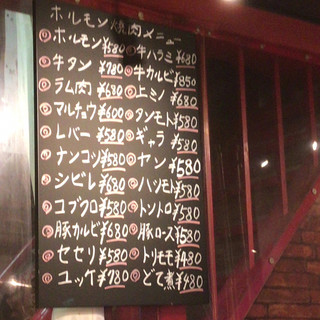 ホルモン焼肉メニュー
ホルモン¥580 牛ハラミ¥680
牛タン ¥780 牛カルビ¥850
ラム肉 ¥680 上ミノ ¥680
マルチョウ¥600 タンモト¥580
レバー ¥580 ギャラ ¥580
ナンコツ¥580 ヤン ¥580
シビレ ¥680 ハツモト¥580
コブクロ¥580 トントロ¥580
豚カルビ¥680 豚ロース¥580
セセリ ¥580 トリモモ¥480
ユッケ ¥780 どて煮¥480